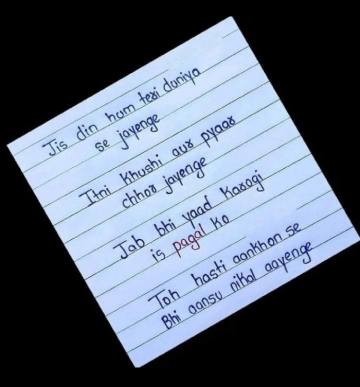 Jis din hum teri duniya
se jayenge
Itni khushi aur pyaar
chhor jayenge
Jab bhi yaad karogi
is pagal ko
Toh hasti aankhon se
Bhi aansu nikal aayenge